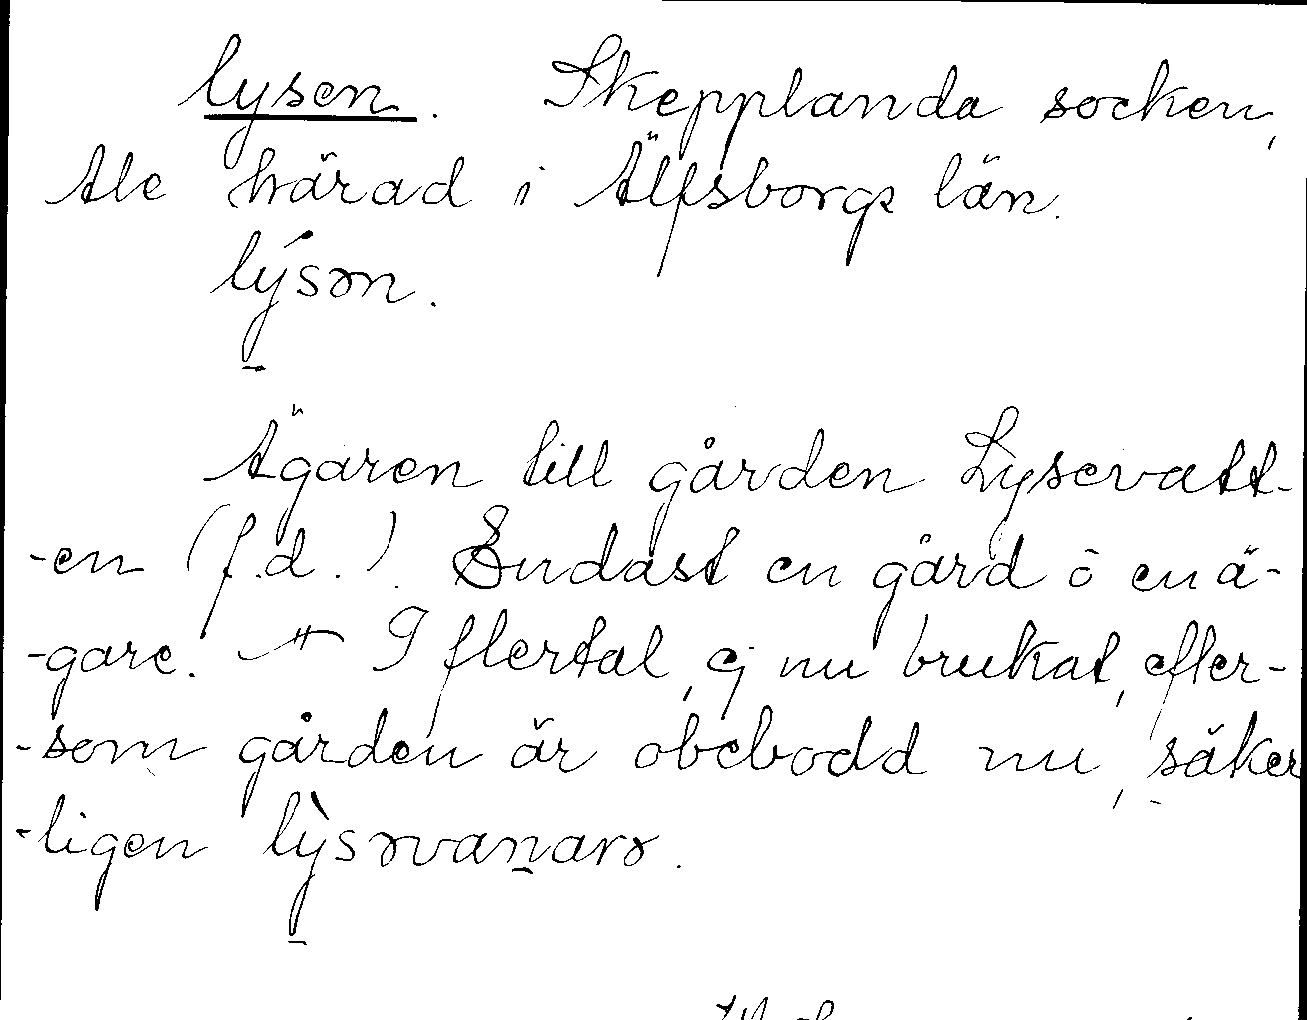 lysen. Skepplanda socken,
Ale härad i Älfsborgs län.
lýsən.
Ägaren till gården Lysevatt-
-en (f.d.). Endast en gård ō en ä-
-gare. I flertal, ej nu brukat, efter-
-som gården är obebodd nu, säker
-ligen lỳsəvaṉarə.